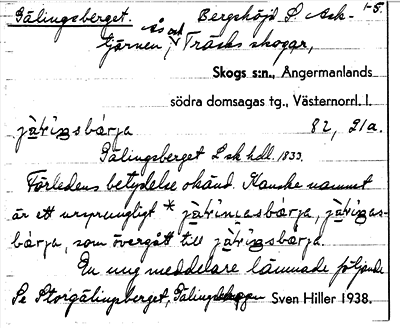 Gälingsberget. Bergshöjd S Ask- 1-5.
tjärnen, Ås och Träsks skogar,
Skogs s:n., Ångermanlands
södra domsagas tg., Västernorrl. l.
82, 21a.
Gälingsberget L sk hdl. 1833.
Förledens betydelse okänd. Kanske namnet
är ett ursprungligt *
som övergått till
En ung meddelare lämnade följande
Se Storgälingsberget, Sven Hiller 1938.